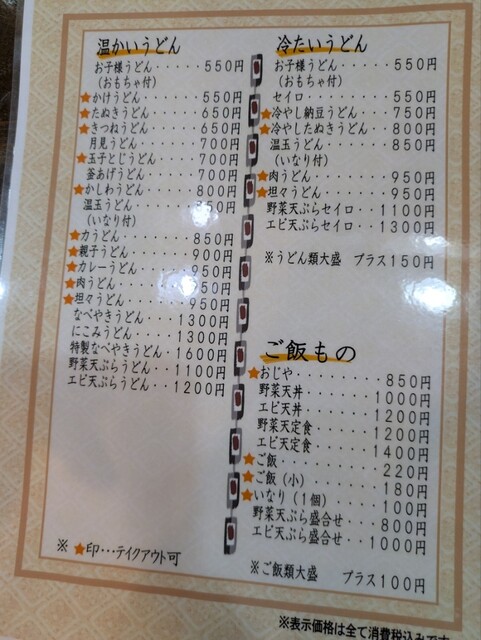 温かいうどん
お子様うどん・・・・・550円
(おもちゃ付)
★かけうどん・・・・・・550円
★たぬきうどん・・・・・650円
★きつねうどん・・・・・650円
月見うどん・・・・・・700円
★玉子とじうどん・・・・700円
釜あげうどん・・・・・700円
★かしわうどん・・・・・800円
温玉うどん・・・・・・50円
(いなり付)
★力うどん・・・・・・・850円
★親子うどん・・・・・・900円
★カレーうどん・・・・・950円
★肉うどん・・・・・・・950円
★坦々うどん・・・・・・950円
なべやきうどん・・・1300円
にこみうどん・・・・1300円
特製なべやきうどん・1600円
野菜天ぷらうどん・・1100円
エビ天ぷらうどん・・1200円
※ ★印・・・テイクアウト可
冷たいうどん
お子様うどん・・・・・550円
(おもちゃ付)
セイロ・・・・・・・・550円
★冷やし納豆うどん・・・750円
★冷やしたぬきうどん・・800円
温玉うどん・・・・・・850円
(いなり付)
★肉うどん・・・・・・・950円
★坦々うどん・・・・・・950円
野菜天ぷらセイロ・・1100円
エビ天ぷらセイロ・・1300円
※うどん類大盛 プラス150円
ご飯もの
★おじや・・・・・・・・850円
野菜天丼・・・・・・1000円
エビ天丼・・・・・・1200円
野菜天定食・・・・・1200円
エビ天定食・・・・・1400円
★ご飯・・・・・・・・・220円
★ご飯(小)・・・・・・・180円
★いなり(1個)・・・・・100円
野菜天ぷら盛合せ・・・800円
エビ天ぷら盛合せ・・1000円
※ご飯類大盛 プラス100円
※表示価格は全て消費税込みです